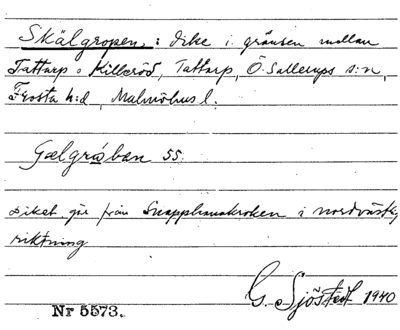 Skälgropen, : dike i gränsen mellan
Tattarp o Killeröd, Tattarp, Ö. Sallerups s:n,
Frosta h:d, Malmöhus l.
Gælgråban 55.
Diket går från Snapphanekroken i nordvästlig
riktning
G. Sjöstedt 1940
Nr 5573.